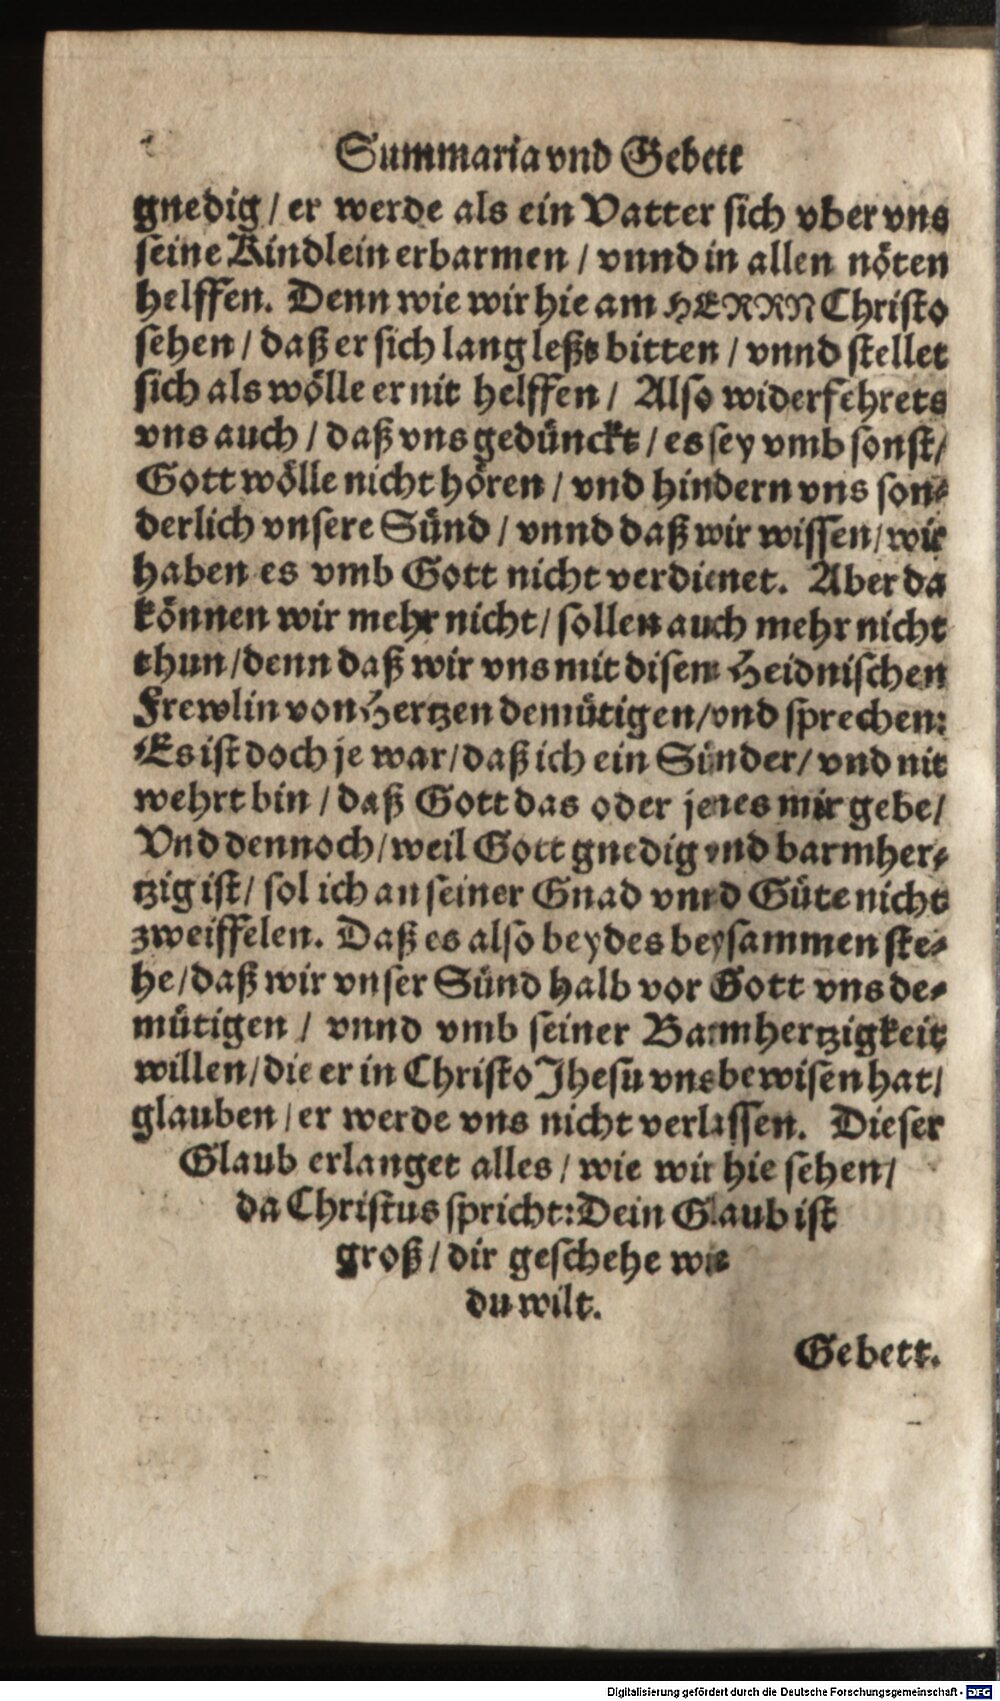 Summaria vnd Gebett
gnedig / er werde als ein Vatter sich vber vns
seine Kindlein erbarmen / vnnd in allen nöten
helffen. Denn wie wir hie am HERRN Christo
sehen / daß er sich lang leßt bitten / vnnd stellet
sich als wölle er nit helffen / Also widerfehrets
vns auch / daß vns gedünckt / es sey vmb sonst /
Gott wölle nicht hören / vnd hindern vns son-
derlich vnsere Sünd / vnnd daß wir wissen / wir
haben es vmb Gott nicht verdienet. Aber da
können wir mehr nicht / sollen auch mehr nicht
thun / denn daß wir vns mit disem Heidnischen
Frewlin von Hertzen demütigen / vnd sprechen:
Es ist doch je war / daß ich ein Sünder / vnd nit
wehrt bin / daß Gott das oder jenes mir gebe /
Vnd dennoch / weil Gott gnedig vnd barmher-
tzig ist / sol ich an seiner Gnad vnnd Güte nicht
zweiffelen. Daß es also beydes beysammen ste-
he / daß wir vnser Sünd halb vor Gott vns de-
mütigen / vnnd vmb seiner Barmhertzigkeit
willen / die er in Christo Jhesu vns bewisen hat /
glauben / er werde vns nicht verlassen. Dieser
Glaub erlanget alles / wie wir hie sehen /
da Christus spricht: Dein Glaub ist
groß / dir geschehe wie
du wilt.
Gebett.
Digitalisierung gefördert durch die Deutsche Forschungsgemeinschaft - DFG